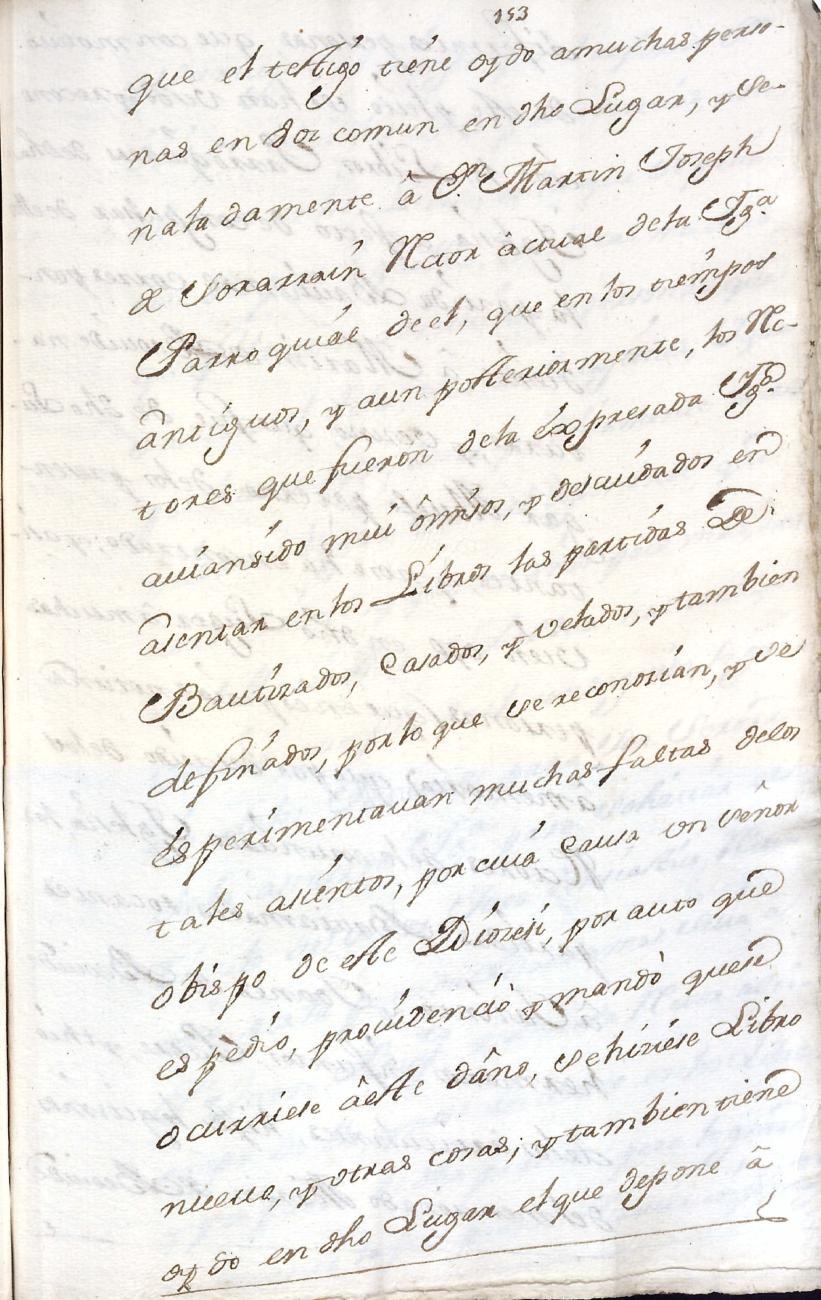 153
que el testigo tiene oydo a muchas perso-
nas en voz comun en dho Lugar, y se-
ñaladamente â Dn. Martin Joseph
de Sorarrain Rctor âctual dela Iga.
Parroquial de el, que en los tiempos
antiguos, y aun posteriormente, los Rc-
tores que fueron dela expresada Iga.
auian sido mui ômisos, y descuidados en
asentar en los Libros las partidas De
Bautizados, Casados, y Velados, y tambien
definados, por lo que se reconozian, y se
esperimentauan muchas faltas delos
tales asientos, por cuia Causa un señor
obispo de este Diozesi, por auto que
espedio, prouidenciò y mandò quese
ocurriese âeste daño, se hiziese Libro
nueuo, y otras cosas; y tambien tiene
oydo en dho Lugar el que depone â